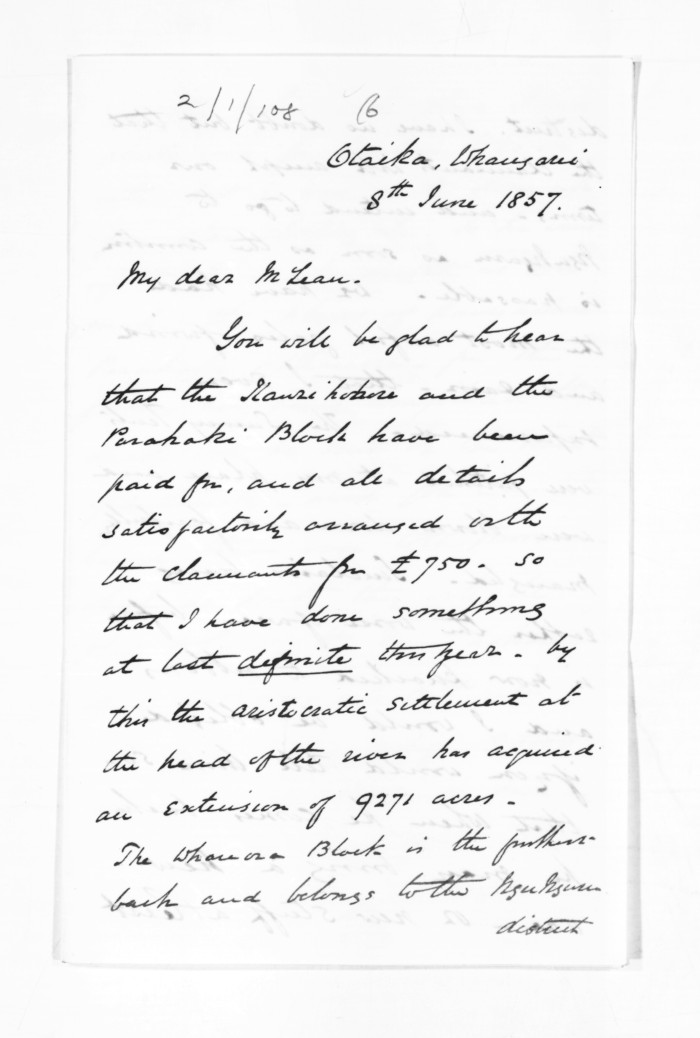 2/1/108 6
Otaika, Whangarei
8th June 1857.
My dear McLean.
You will be glad to hear
that the Kaurihohore and the
Parahaki Block have been
paid for, and all details
satisfactorily arranged with
the claimants for £750. So
that I have done something
at last definite this year. by
this the aristocratic settlement at
the head of the river has acquired
an extension of 9271 acres.
The Whareora Block is the further
back and belongs to the Ngunguru
district